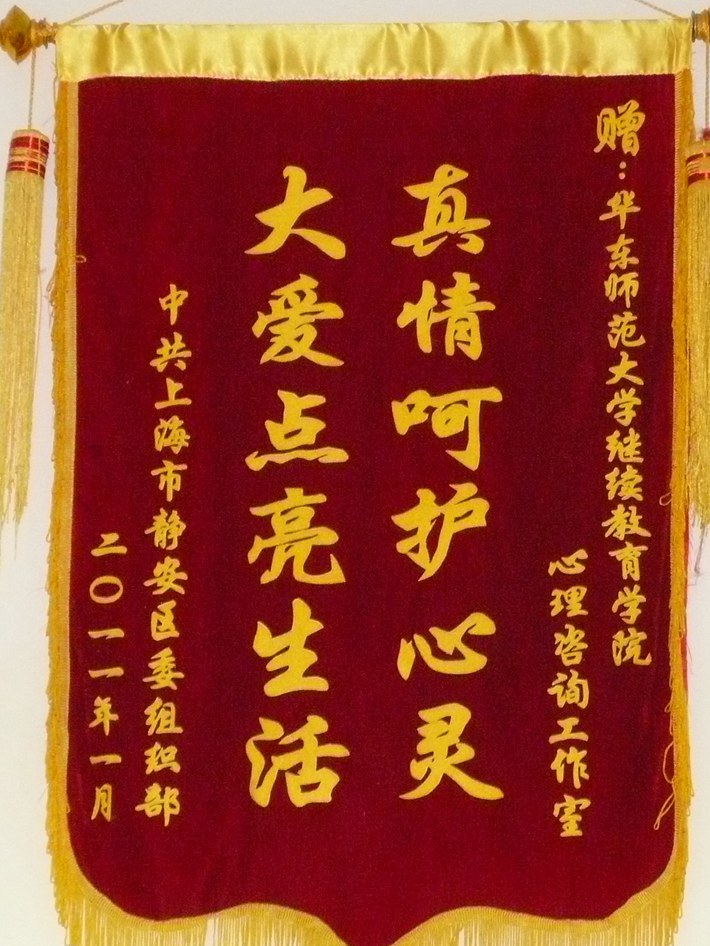 赠：华东师范大学继续教育学院
心理咨询工作室
真情呵护心灵
大爱点亮生活
中共上海市静安区委组织部
二〇一一年一月